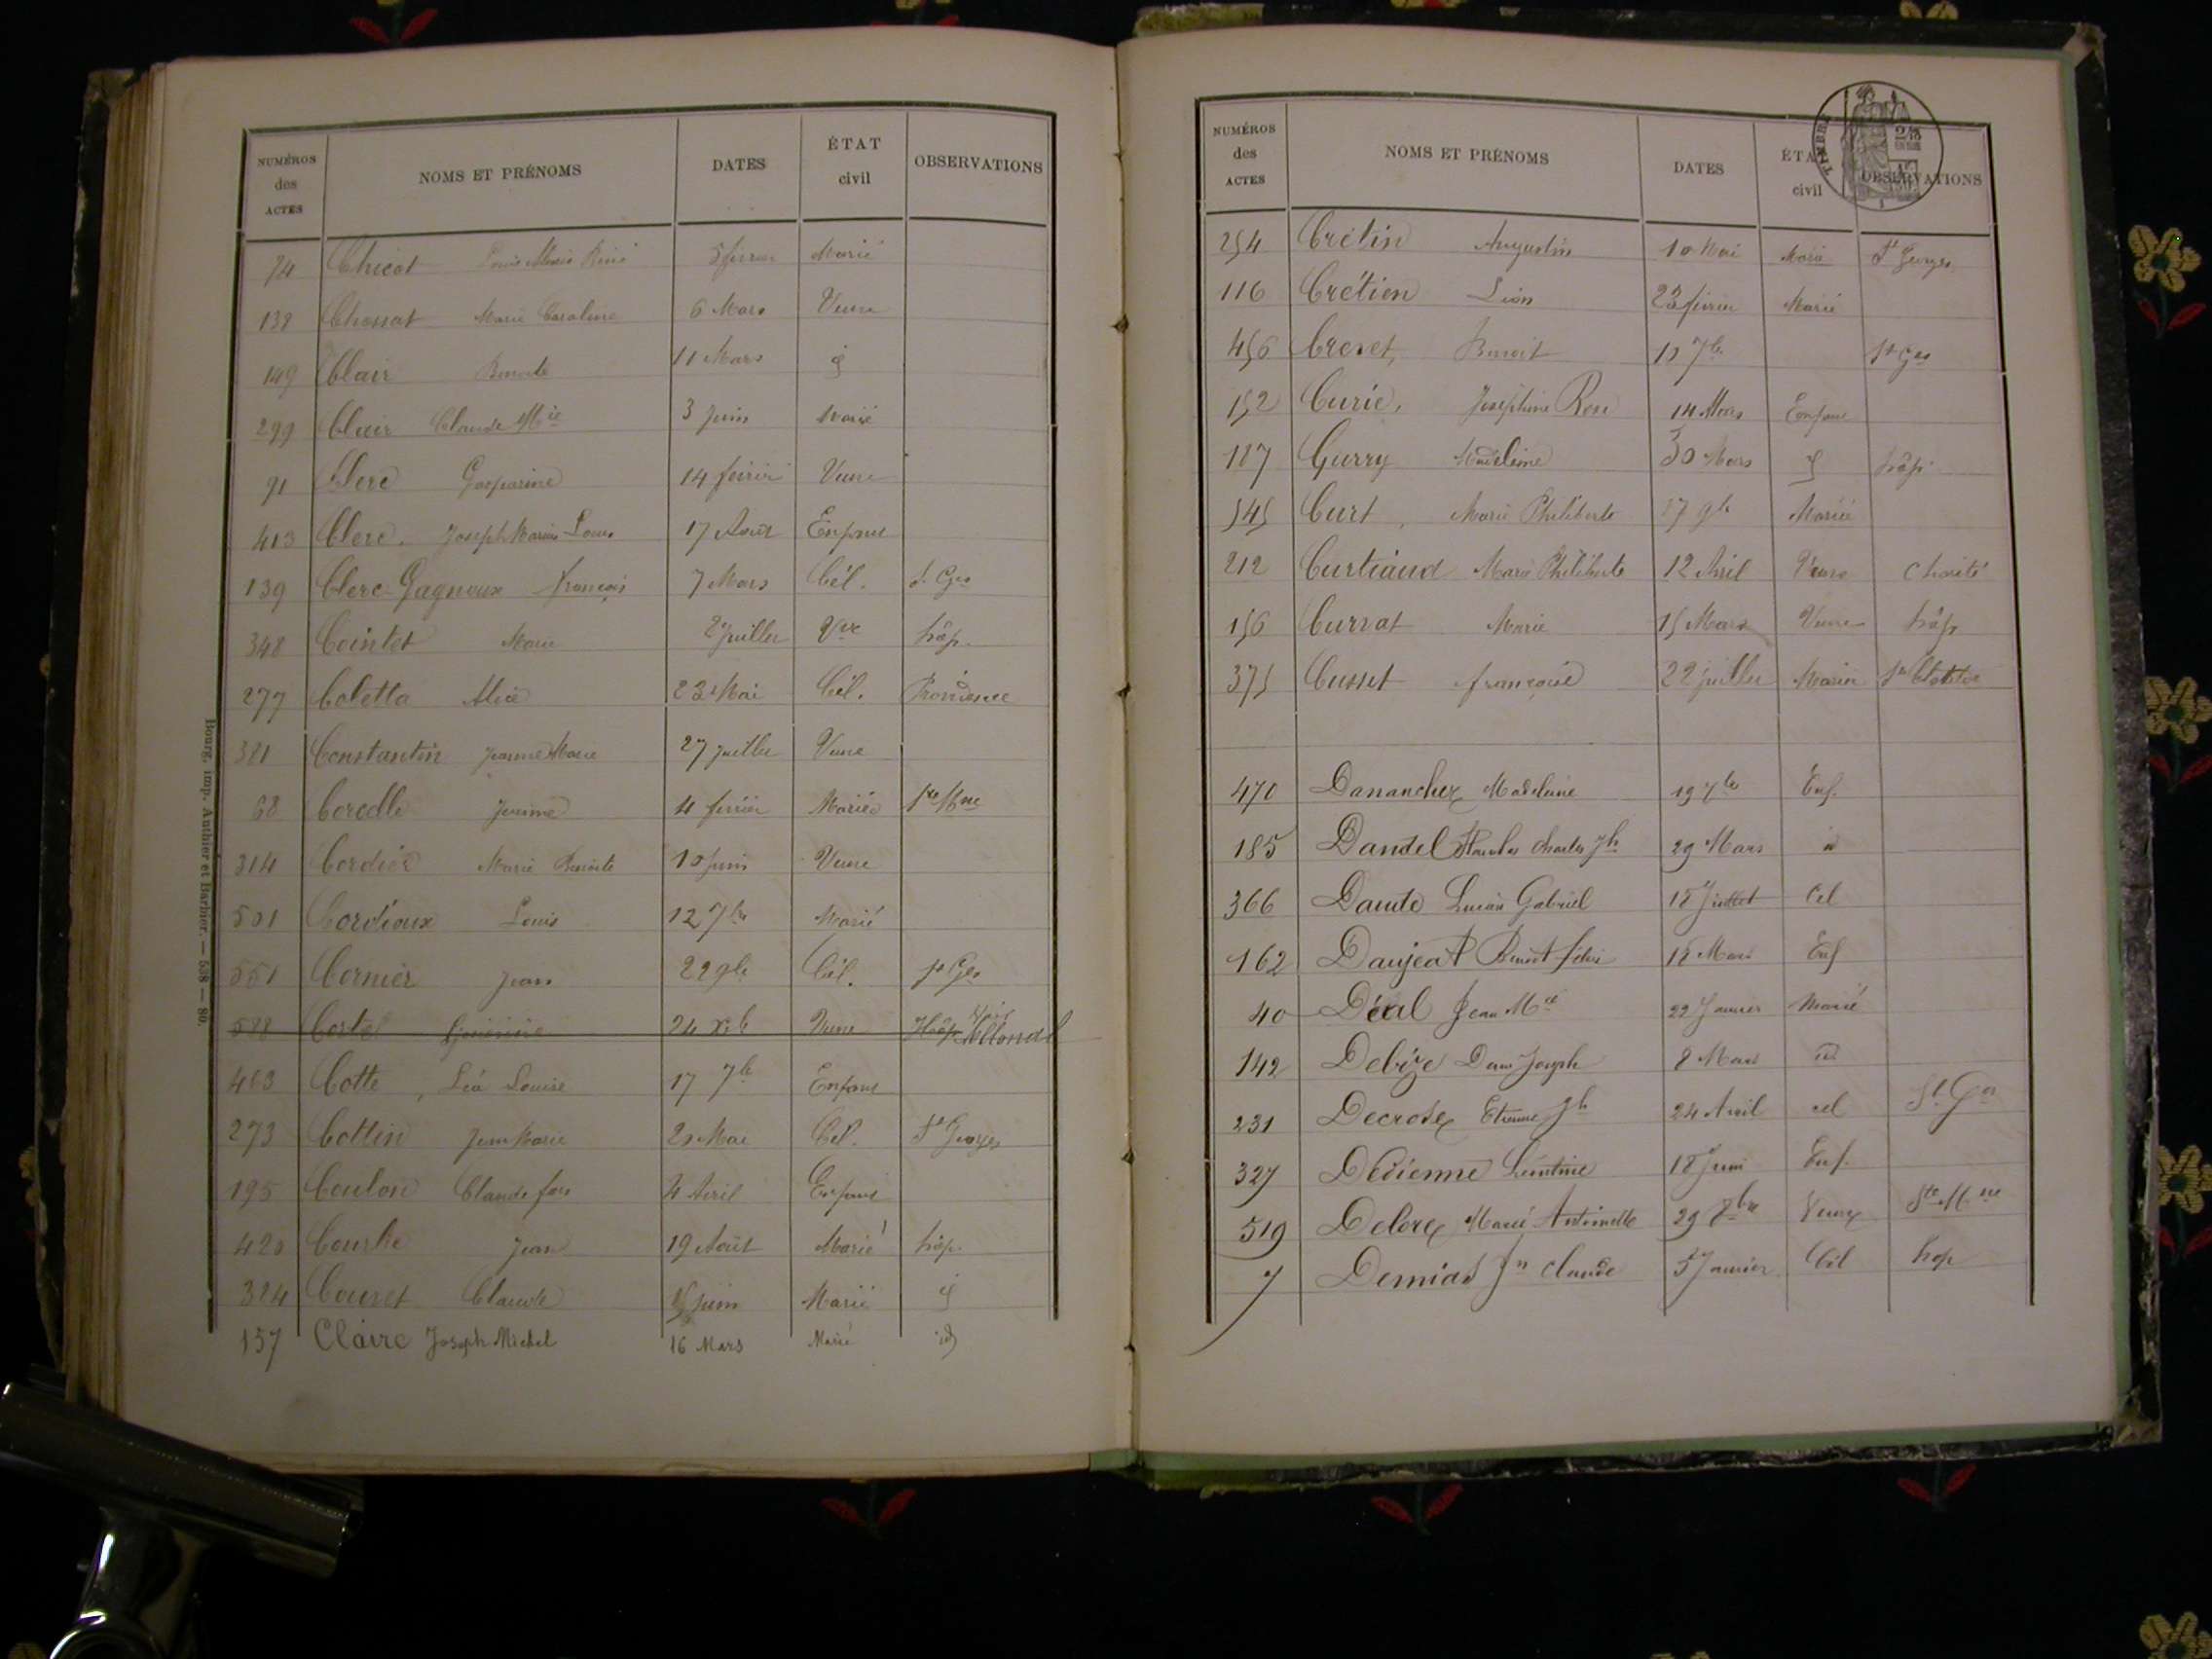 NUMÉROS des ACTES NOMS ET PRÉNOMS DATES ÉTAT civil OBSERVATIONS
74 Chicot Louis Marie René 5 février Marié
132 Chossat Marie Caroline 6 Mars Veuve
149 Clair Benoite 11 Mars
299 Clair Claude Mie 3 Juin Marié
91 Clerc Gasparine 14 février Veuve
413 Clerc. Joseph Marius Louis 17 Août Enfant
139 Clerc-Gagneux françois 7 Mars Cél. St Ges
348 Cointet Marie 2 juillet Vve hôp.
277 Coletta Alice 23 Mai Cél. Providence
381 Constantin Jeanne Marie 27 juillet Veuve
68 Coredle Jeanne 4 février Mariée Ste Mne
314 Cordier Marie Benoite 10 juin Veuve
501 Cordioux Louis 12 Marié
551 Cornier Jean 22 9b Cél. St Ges
24 Xb Veuve Hôp
463 Cotte, Léa Louise 17 7b Enfant
273 Cottin Jean Marie 20 Mai Cél. St Georges
195 Coulon Claude fois 4 Avril Enfant
420 Courbe Jean 19 Août Marié hôp.
324 Couret Claude 15 juin Marié
157 Claire Joseph Michel 16 Mars Marié id
Bourg, imp. Authier et Barbier. — 538 — 80.
NUMÉROS des ACTES NOMS ET PRÉNOMS DATES ÉTAT civil OBSERVATIONS
TIMBRE
254 Crétin Augustin 10 Mai Marié St Georges
116 Crétien Léon 23 février Marié
456 Crevet, Benoit 10 7b St Ges
152 Curie, Joséphine Rose 14 Mars Enfant
187 Gurry Madeleine 30 Mars hôp.
545 Curt, Marie Philiberte 17 9b Mariée
212 Curtiaud Marie Philiberte 12 Avril Veuve Charité
156 Currat Marie 15 Mars Veuve hôp
375 Cusset françoise 22 juillet Mariée
470 Dananchez Madeleine 19 7bre Enf.
185 Dandel Stanislas Charles Jh 29 Mars id
366 Daute Lucien Gabriel 18 Juillet Cel
162 Daujeat Benoit félix 18 Mars Enf
40 Déal Jean Mie 22 Janvier Marié
142 Debize Denis Joseph 8 Mars id
231 Decroze Etienne Jh 24 Avril cel St Ges
327 Dedienne Léontine 18 Juin Enf.
519 Delorx Marie Antoinette 29 8bre Veuve Ste Mne
7 Demias Jn Claude 5 Janvier Cél hop